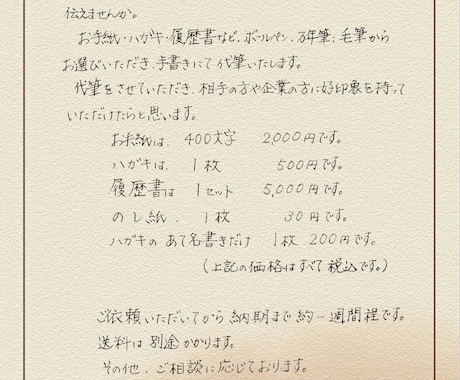 伝えませんか。
お手紙・ハガキ・履歴書など、ボールペン、万年筆、毛筆から
お選びいただき、手書きにて代筆いたします。
代筆をさせていただき、相手の方や企業の方に好印象を持って
いただけたらと思います。
お手紙は、400文字 2,000円です。
ハガキは、1枚 500円です。
履歴書は 1セット 5,000円です。
のし紙、1枚 30円です。
ハガキの あて名書きだけ 1枚 200円です。
(上記の価格はすべて税込です。)
ご依頼いただいてから納期まで約一週間程です。
送料は別途かかります。
その他、ご相談に応じております。